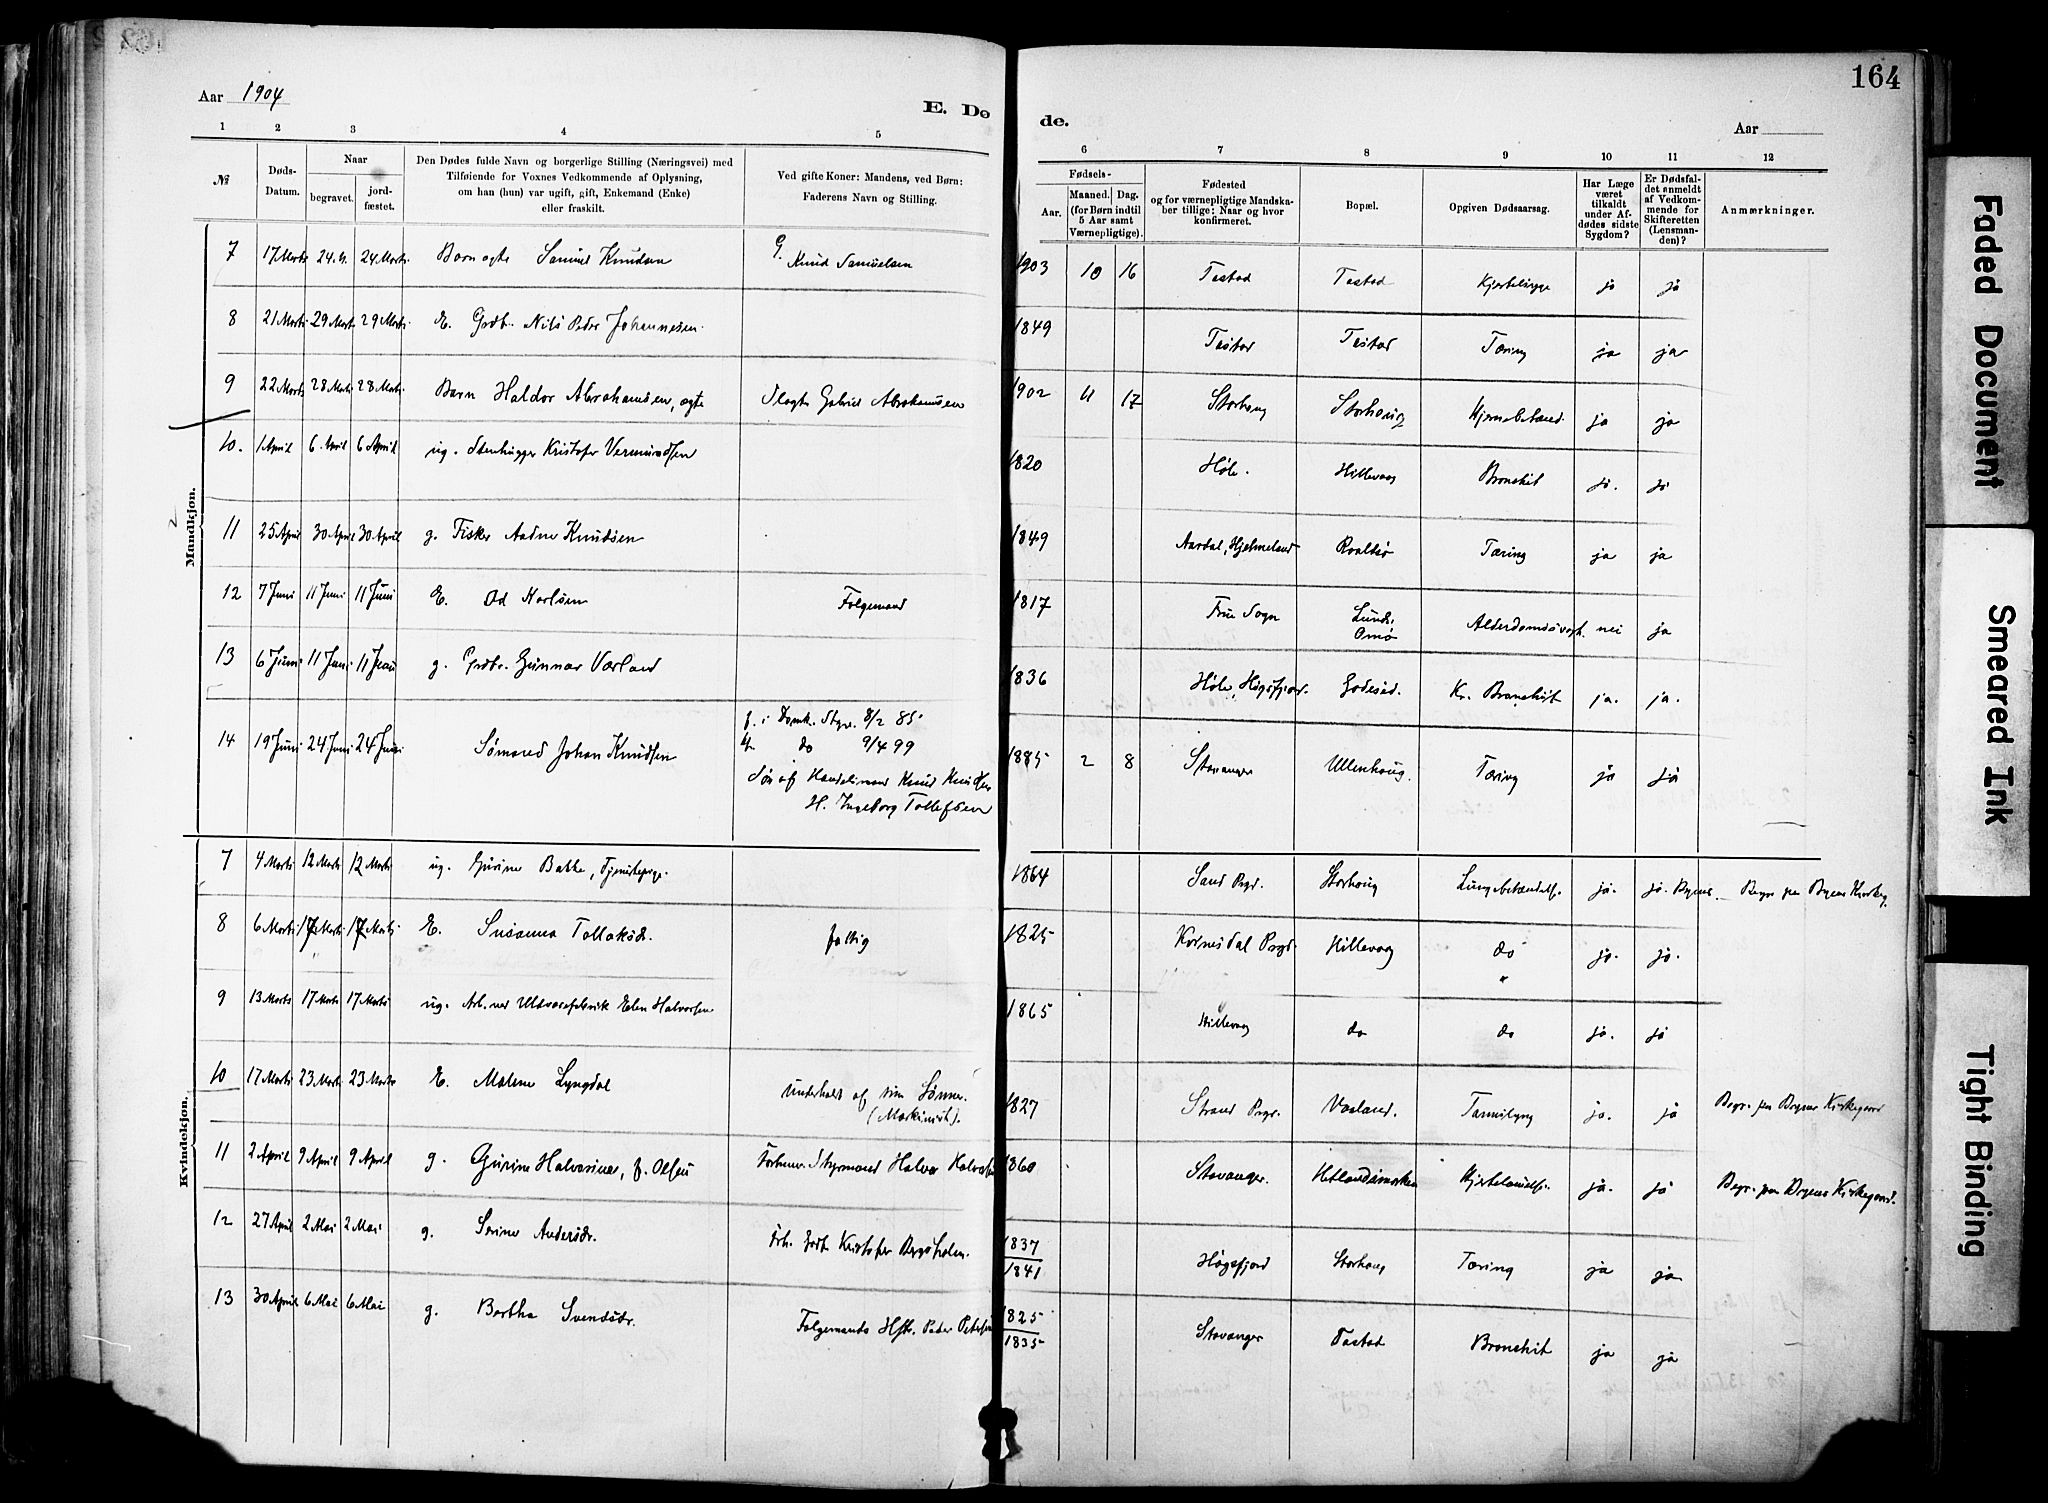 164
Aar 1904
E. Dø
de.
Aar
1 2 3 4 5 6 7 8 9 10 11 12
№
Døds-Datum.
Naar
begravet.
jord-fæstet.
Den Dødes fulde Navn og borgerlige Stilling (Næringsvei) med
Tilføiende for Voxnes Vedkommende af Oplysning,
om han (hun) var ugift, gift, Enkemand (Enke)
eller fraskilt.
Ved gifte Koner: Mandens, ved Børn:
Faderens Navn og Stilling.
Fødsels-
Aar.
Maaned. Dag.
(for Børn indtil
5 Aar samt
Værnepligtige).
Fødested
og for værnepligtige Mandska-
ber tillige: Naar og hvor
konfirmeret.
Bopæl.
Opgiven Dødsaarsag.
Har Læge
været
tilkaldt
under Af-
dødes sidste
Sygdom?
Er Dødsfal-
det anmeldt
af Vedkom-
mende for
Skifteretten
(Lensman-
den)?
Anmærkninger.
Mandkjøn.
7 17 Marts 24 M. 24 Marts Barn ægte Samuel Knudsen G. Knud Samuelsen 1903 10 16 Tastad Tastad Kjertelsyge ja ja
8 21 Marts 29 Marts 29 Marts E. Grdbr. Nils Peder Johannesen. 1849 Tastad Tastad Tæring ja ja
9 22 Marts 28 Marts 28 Marts Barn Haldor Abrahamsen, ægte Slagter Gabriel Abrahamsen 1902 11 17 Storhoug Storhoug Hjernebetænd. ja ja
10. 1 April 6 April 6 April ug. Stenhugger Kristofer Vermundsen 1820 Høle. Hillevaag Bronchit ja. ja
11 25 April 30 April 30 April g. Fisker Aadne Knudsen 1849 Aardal, Hjelmeland Roaltsø Tæring ja ja
12 7 Juni 11 Juni 11 Juni E. Od Karlsen Følgemand 1817 Frue Sogn Lunds, Omø Alderdomssvagh. nei ja
13 6 Juni 11 Juni 11 Juni g. Grdbr. Gunnar Varland 1836 Høle, Høgsfjord. Godesed. Kr. Bronchit ja. ja.
14 19 Juni 24 Juni 24 Juni Sømand Johan Knudsen f. i Domk. Stgr. 8/2 85 1885 2 8 Stavanger Ullenhaug. Tæring ja ja
do 9/4 99
Søn af Handelsmand Knud Knudsen
H. Ingeborg Tollefsen
Kvindekjøn.
7 4 Marts 12 Marts 12 Marts ug. Gurine Bakke, Tjenestepige. 1864 Sand Prgd. Storhoug Lungebetændelse. ja. ja. Byens Begr. paa Byens Kirkeg.
8 6 Marts 17 Marts 17 Marts E. Susanna Tollaksdr. fattig 1825 Kornsdal Prgd. Hillevaag do ja. ja.
9 13 Marts 17 Marts 17 Marts ug. Arb. ved Uldvarefabrik Elen Halvorsen 1865 Hillevaag do do ja. ja
10 17 Marts 23 Marts 23 Marts E. Malene Lyngdal Underholdt af sin Sønner. 1827 Strand Prgd. Vaaland. ja. ja Begr. paa Byens Kirkegaard
(Maskinist).
11 2 April 9 April 9 April g. Gurine Halvorsen, f. Olsen Forhenv. Styrmand Halvor Halvorsen 1860 Stavanger. Hetlandsmarken ja. ja Begr. paa Byens Kirkegaard.
12 27 April 2 Mai 2 Mai g. Serine Andersdr. Kristofer Bergsholm. 1837 1841 Høgsfjord Storhoug Tæring ja ja
13 30 April 6 Mai 6 Mai g. Bertha Svendsdr. Følgemands Hstr. Peder Petersen 1825 1835 Stavanger Tastad Bronchit ja ja
Faded Document
Smeared Ink
Tight Binding